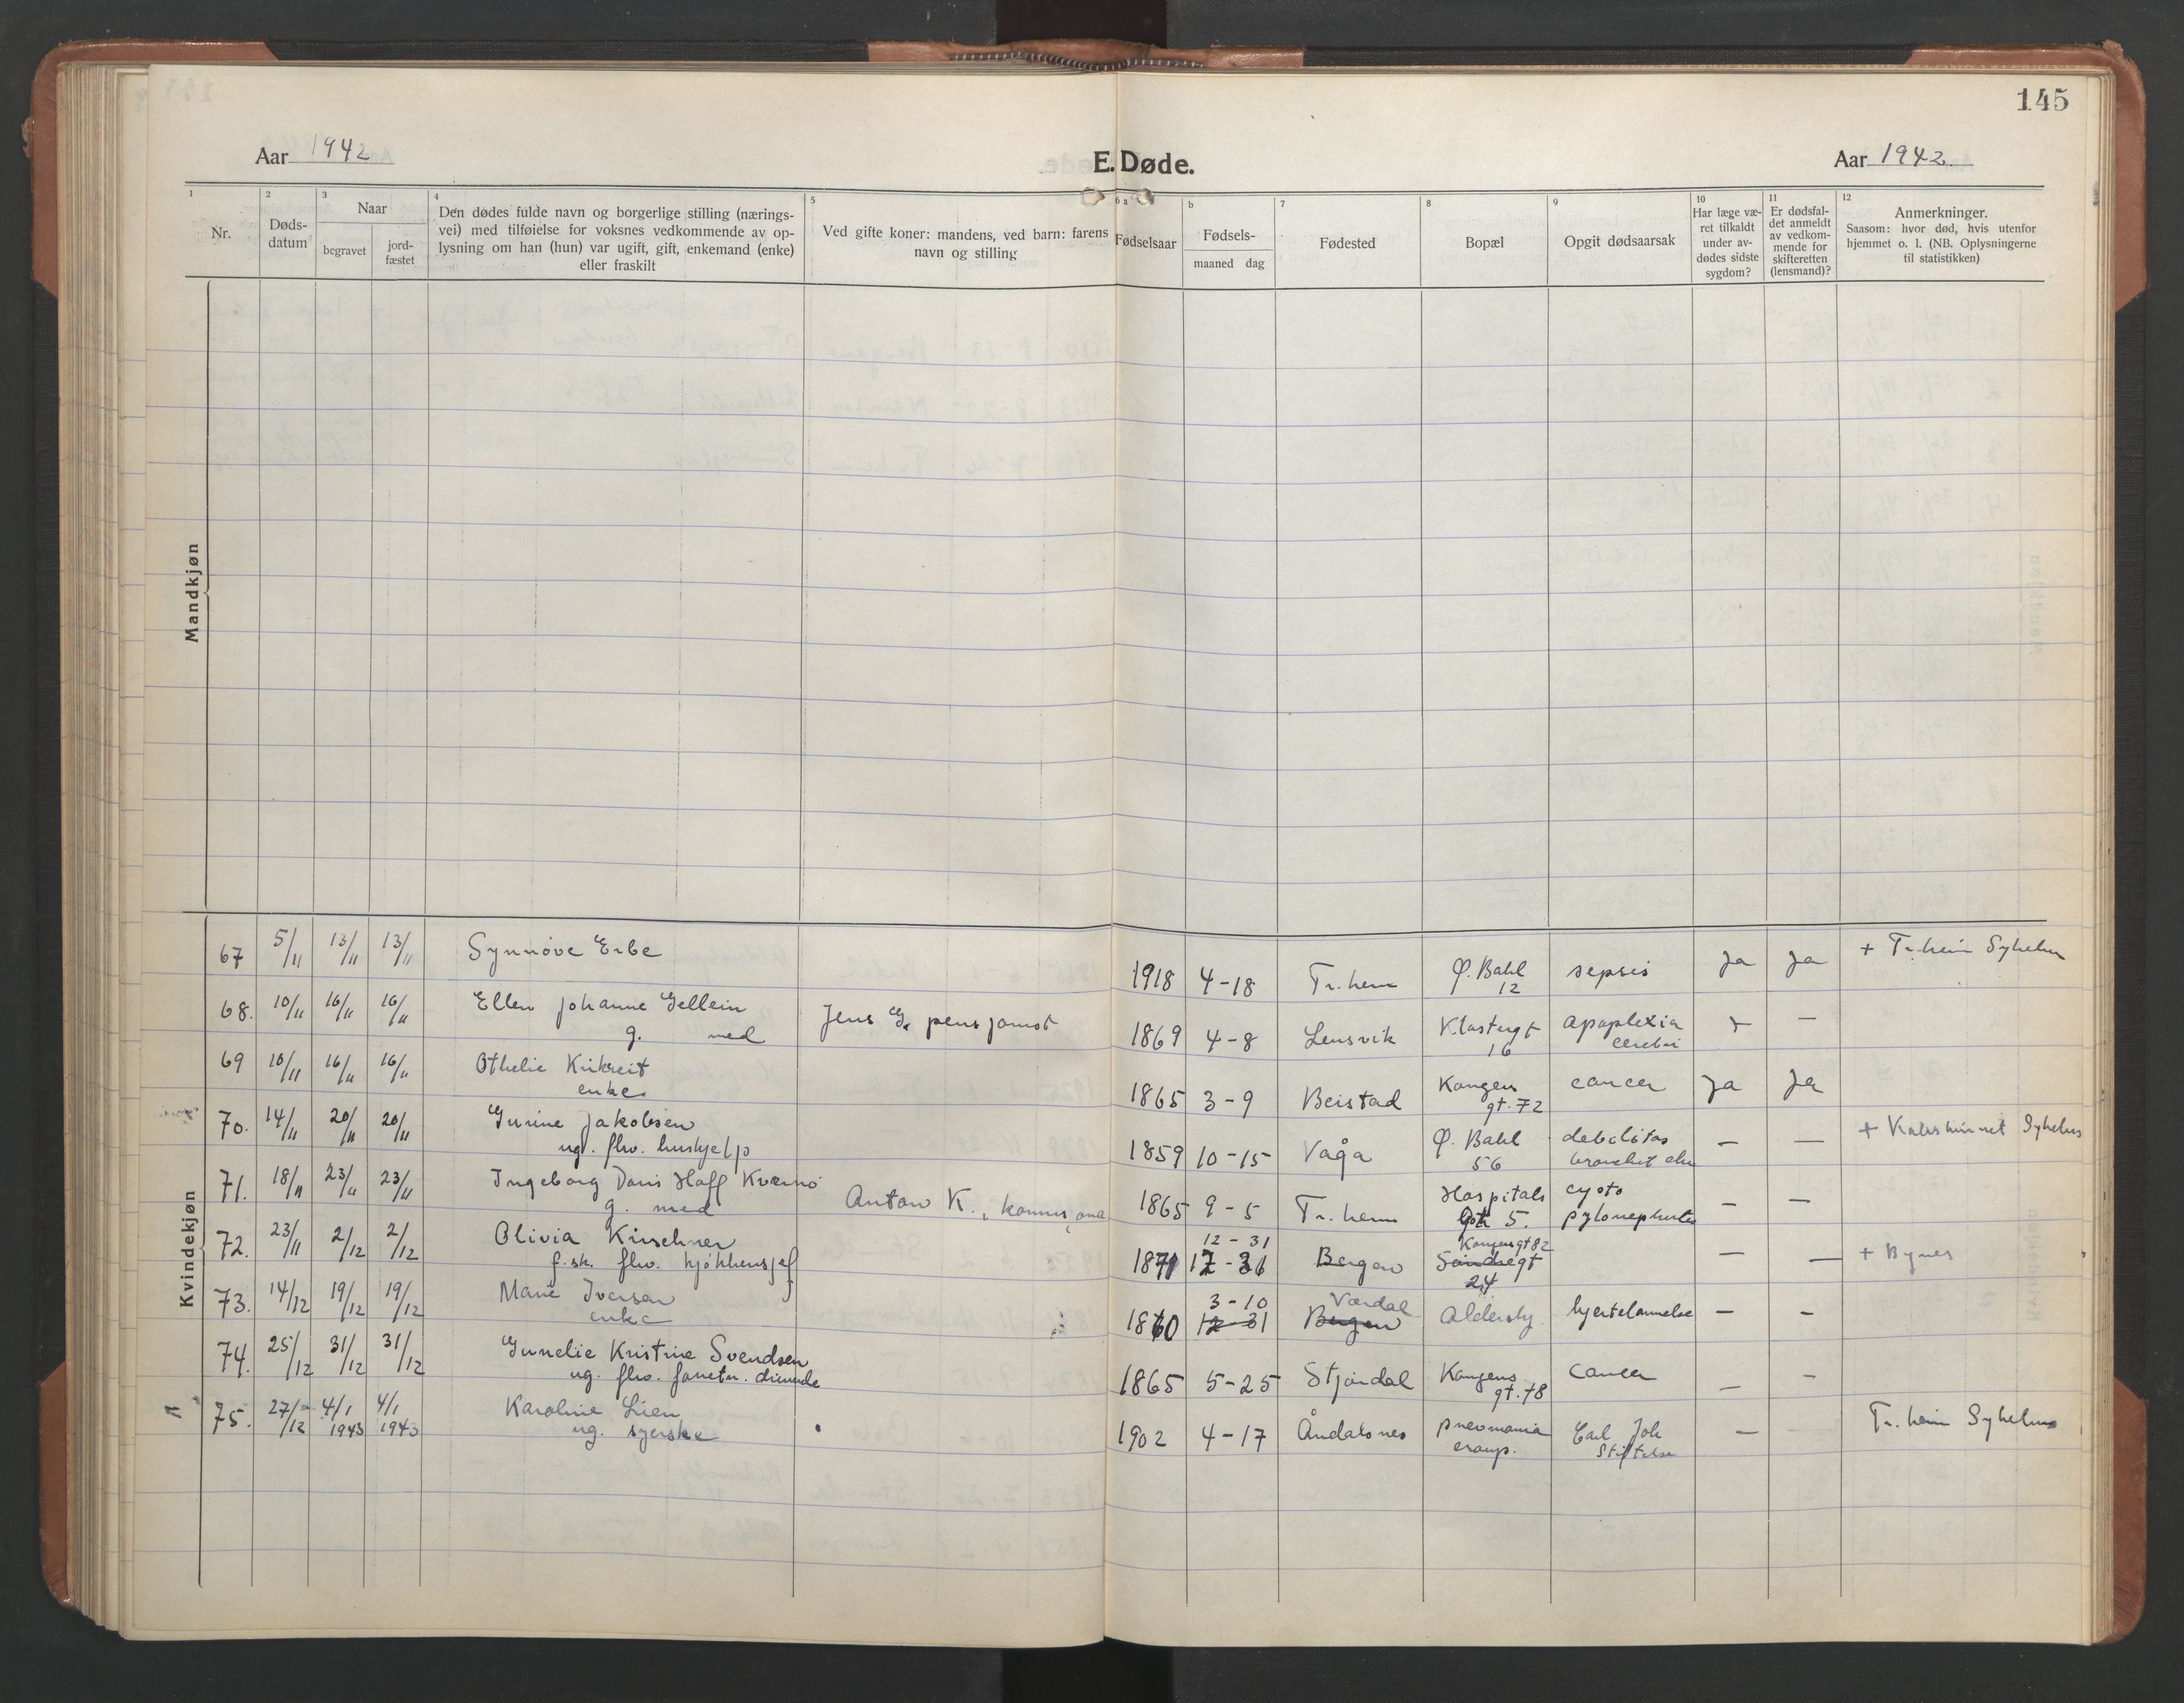 145
Aar 1942
E. Døde.
Aar 1942
1
Nr.
2
Døds-
datum
3
Naar
begravet
jord-
fæstet
4
Den dødes fulde navn og borgerlige stilling (nærings-
vei) med tilføielse for voksnes vedkommende av op-
lysning om han (hun) var ugift, gift, enkemand (enke)
eller fraskilt
5
Ved gifte koner: mandens, ved barn: farens
navn og stilling
6 a
Fødselsaar
b
Fødsels-
maaned dag
7
Fødested
8
Bopæl
9
Opgit dødsaarsak
10
Har læge væ-
ret tilkaldt
under av-
dødes sidste
sygdom?
11
Er dødsfal-
det anmeldt
av vedkom-
mende for
skifteretten
(lensmand)?
12
Anmerkninger.
Saasom: hvor død, hvis utenfor
hjemmet o. l. (NB. Oplysningerne
til statistikken)
Mandkjøn
Kvindekjøn
67 5/11 13/11 13/11 Synnöve Erbe 1918 4-18 Tr.heim Ø. Bakl 12 sepsis Ja Ja + Tr.heim Sykehus
68. 10/11 16/11 16/11 Ellen Johanne Gellein
g. med Jens G. pensjonist 1869 4-8 Lensvik Klostergt 16 apoplexia cerebri + —
69 10/11 16/11 16/11 Othelie Kirkreit
enke 1865 3-9 Beistad Kongens gt. 72 cancer Ja Ja
70. 14/11 20/11 20/11 Gurine Jakobsen
ug. fhv. hushjelp 1859 10-15 Vågå Ø. Bakl 56 debilitas bronchit chr — — + Kalvskinnet Sykehus
71. 18/11 23/11 23/11 Ingeborg Doris Hoff Kvernö
g. med Anton K., 1865 9-5 Tr.heim Hospitals 5. cysto pyelonephritis — —
72. 23/11 2/12 2/12 Olivia Kirschner
f.sk. fhv. kjökkensjef 1871 12-31 Bergen Kongensgt 82 Söndregt 24 — — + Bynes
73. 14/12 19/12 19/12 Marie Iversen
enke 1860 3-10 12-31 Værdal Bergen Aldershj. hjertelammelse — —
74. 25/12 31/12 31/12 Gunelie Kristine Svendsen
ug. fhv. 1865 5-25 Stjørdal Kongens gt. 78 Cancer — —
75. 27/12 4/1 1943 4/1 1943 Karoline Lien
ug. syerske 1902 4-17 Åndalsnes pneumonia croup. Carl Joh Stiftelse — — Tr.heim Sykehus